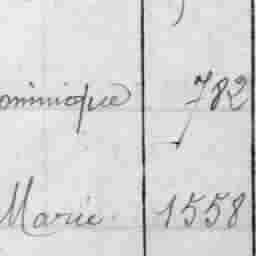 ominique 782
Marie 1558